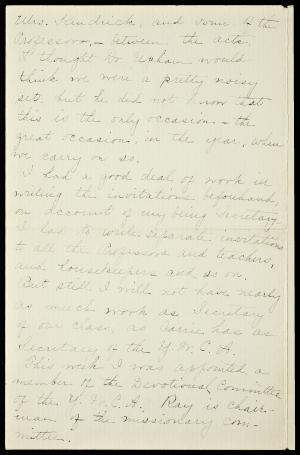 Mrs. Kendrick, and some to the
Professors, – between the acts.
I thought Dr. Upham would
think we were a pretty noisy
set, but he did not know that
this is the only occasion – the
great occasion, in the year, when
we carry on so.
I had a good deal of work in
writing the invitations beforehand,
on account of my being Secretary.
I had to write separate invitations
to all the Professors and teachers,
and housekeepers and so on.
But still I will not have nearly
as much work as Secretary
of our class, as Carrie has as
Secretary of the Y. W. C. A.
This week I was appointed a
member of the Devotional Committee
of the Y. W. C. A. Ray is chair-
man of the missionary com-
mittee.